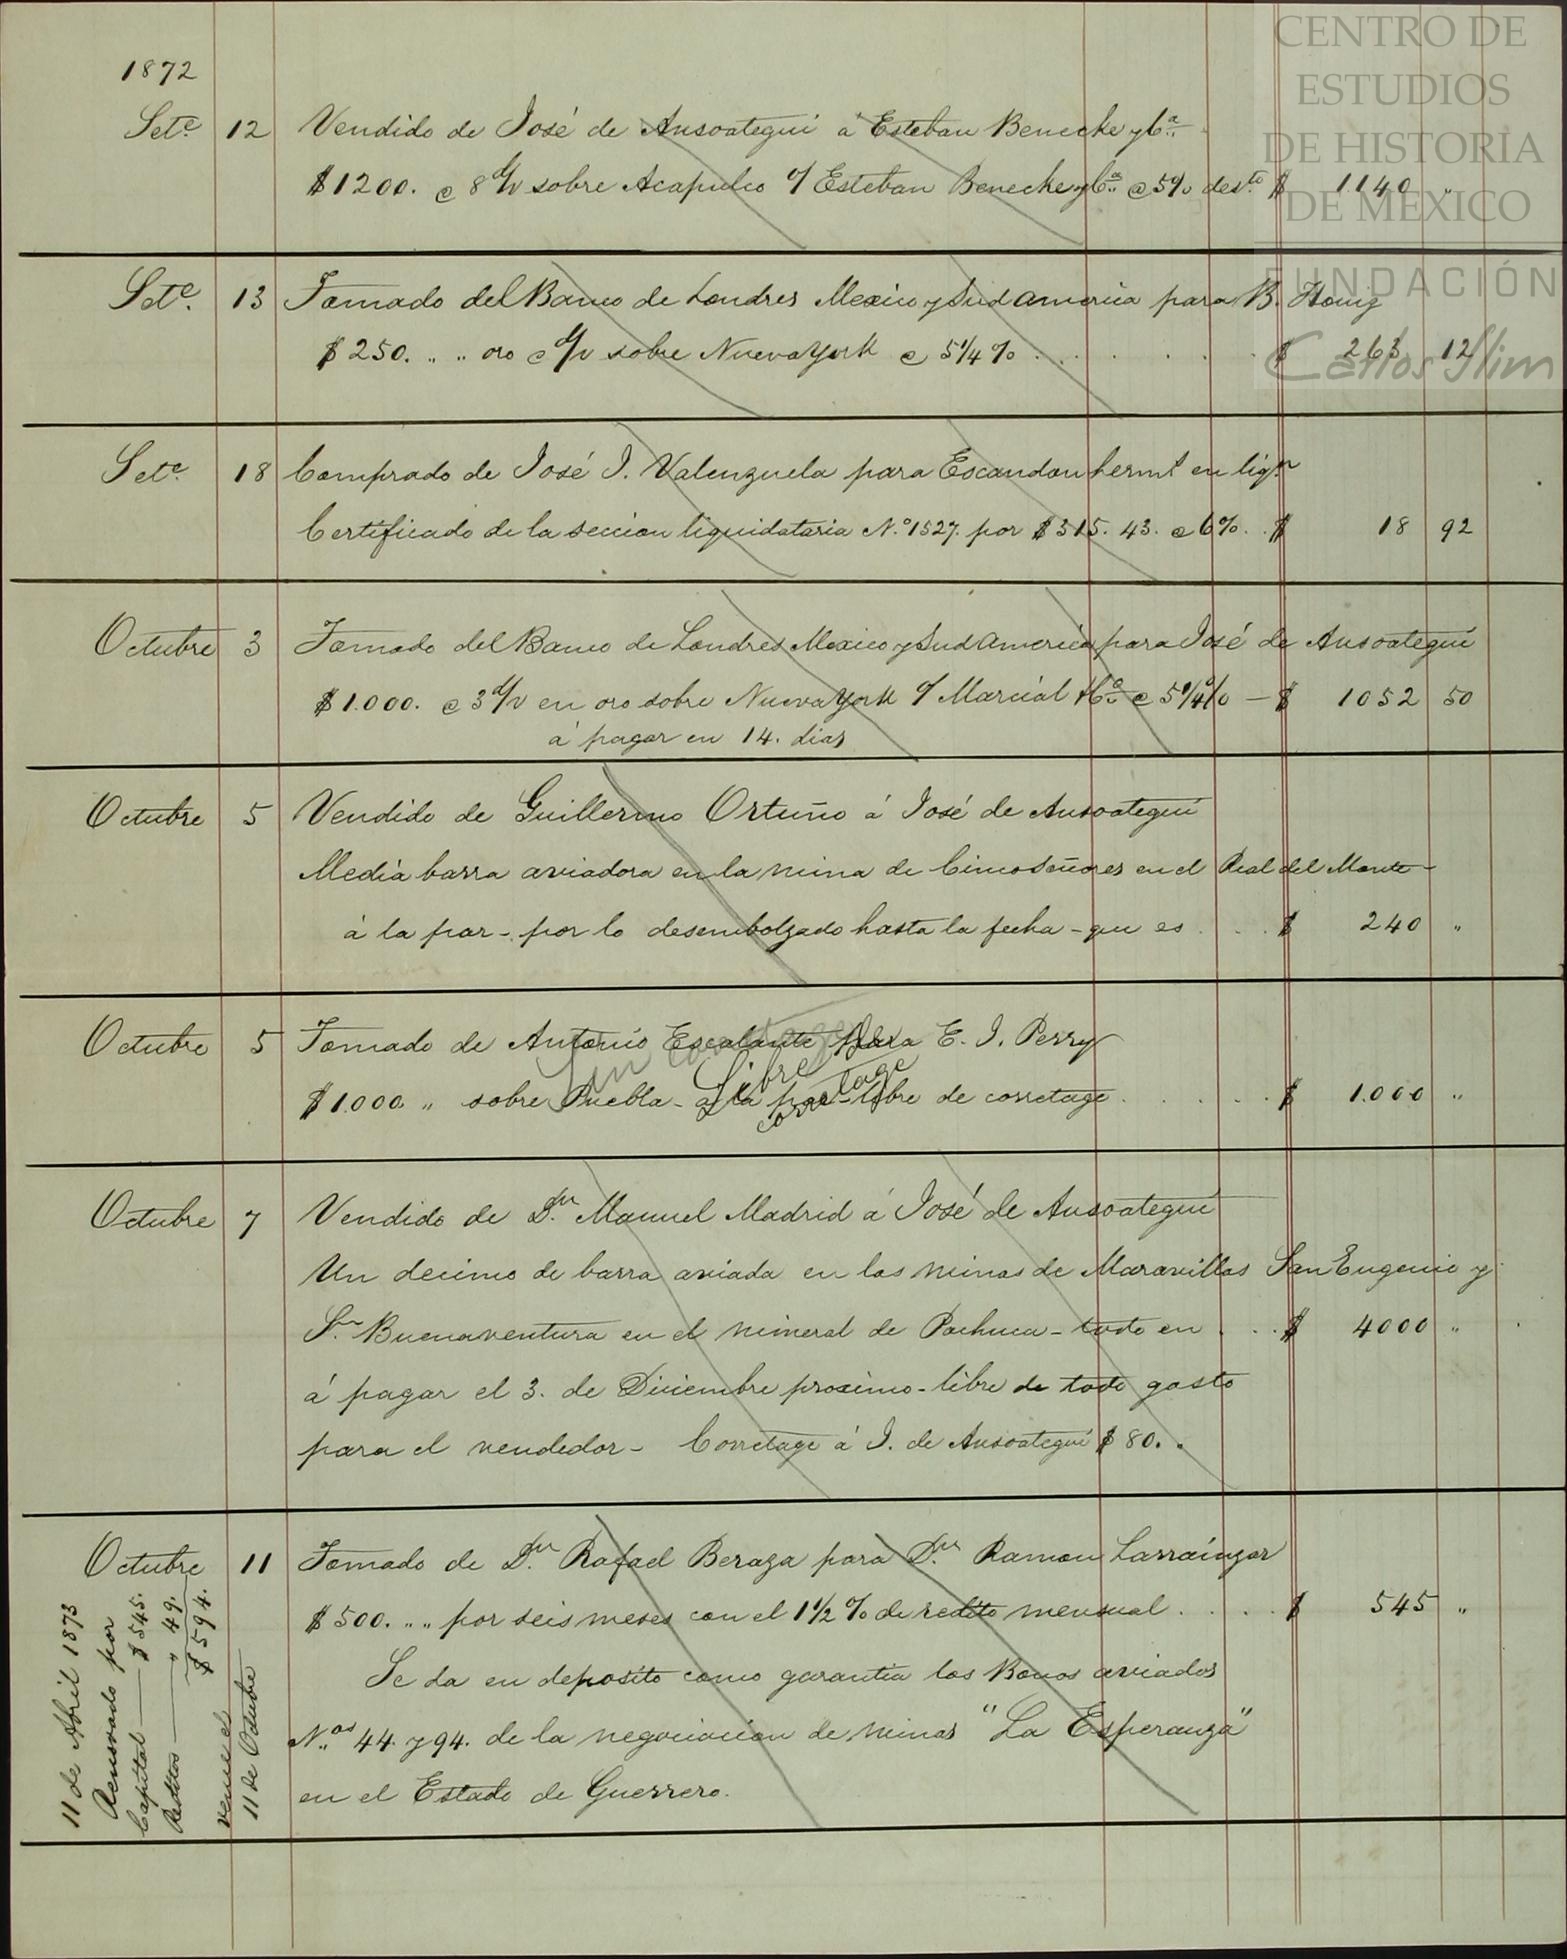 CENTRO DE
ESTUDIOS
DE HISTORIA
DE MÉXICO
FUNDACIÓN
Carlos Slim
1872
Sete. 12 Vendido de José de Ansoategui á Esteban Benecke y Ca.
$1200. @ 8 d/v sobre Acapulco o/ Esteban Benecke y Ca. @ 5% desto $ 1.140 "
Sete. 13 Tomado del Banco de Londres Mexico y Sud America para B. Honig
$250. " " oro @ d/v sobre Nueva York @ 5 1/4 % . . . . . $ 263 12
Sete. 18 Comprado de José I. Valenzuela para Escandon herms en liqn
Certificado de la seccion liquidataria N.o 1527. por $315. 43. @ 6%. . $ 18 92
Octubre 3 Tomado del Banco de Londres Mexico y Sud America para José de Ansoategui
$1.000. @ 3 d/v en oro sobre Nueva York o/ Marcial & Ca. @ 5 1/4 % — $ 1052 50
á pagar en 14. dias
Octubre 5 Vendido de Guillermo Ortuño á José de Ansoategui
Media barra aviadora en la mina de Cinco Señores en el Real del Monte -
á la par - por lo desembolzado hasta la fecha - que es . . . $ 240 "
Octubre 5 Tomado de Antonio Escalante para E. I. Perry
Sin corretage
Libre de
corretage
$1.000 " sobre Puebla - a la par - libre de corretage . . . . . $ 1.000 "
Octubre 7 Vendido de Dn. Manuel Madrid á José de Ansoategui
Un decimo de barra aviada en las minas de Maravillas San Eugenio y
Sn. Buenaventura en el mineral de Pachuca - todo en . . . $ 4000 "
á pagar el 3. de Diciembre proximo - libre de todo gasto
para el vendedor - Corretage á J. de Ansoategui $ 80. "
Octubre 11 Tomado de Dn. Rafael Beraza para Dn. Ramon Larraínzar
$500. " " por seis meses con el 1 1/2 % de redito mensual . . . . $ 545 "
Se da en deposito como garantia los Bonos aviados
N.os 44. y 94. de la negociacion de minas "La Esperanza"
en el Estado de Guerrero.
11 de Abril 1873
Renovado por
Capital — $545.
Reditos — " 49.
$594.
vence el
11 de Octubre